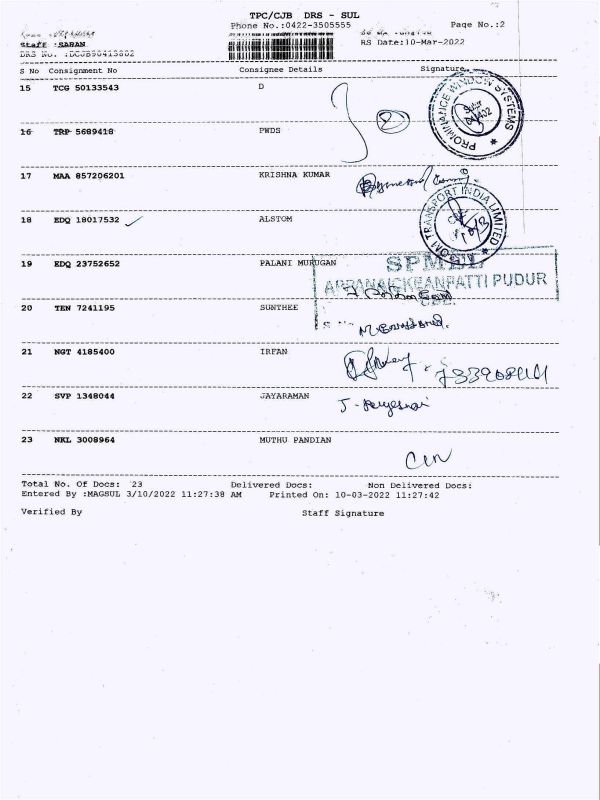 TPC/CJB DRS - SUL
Phone No.:0422-3505555 Page No.:2
Staff :SARAN RS Date:10-Mar-2022
DRS No. :DCJB90413802
S No Consignment No Consignee Details Signature
15 TCG 50133543 D
PROMINANCE WINDOW SYSTEMS
16 TRP 5689418 PWDS
17 MAA 857206201 KRISHNA KUMAR
18 EDQ 18017532 ALSTOM
TRANSPORT INDIA LIMITED
19 EDQ 23752652 PALANI MURUGAN
SPMBL
APPANAICKEANPATTI PUDUR
CBE.
20 TEN 7241195 SUNTHEE
21 NGT 4185400 IRFAN
22 SVP 1348044 JAYARAMAN
23 NKL 3008964 MUTHU PANDIAN
Total No. Of Docs: 23 Delivered Docs: Non Delivered Docs:
Entered By :MAGSUL 3/10/2022 11:27:38 AM Printed On: 10-03-2022 11:27:42
Verified By Staff Signature